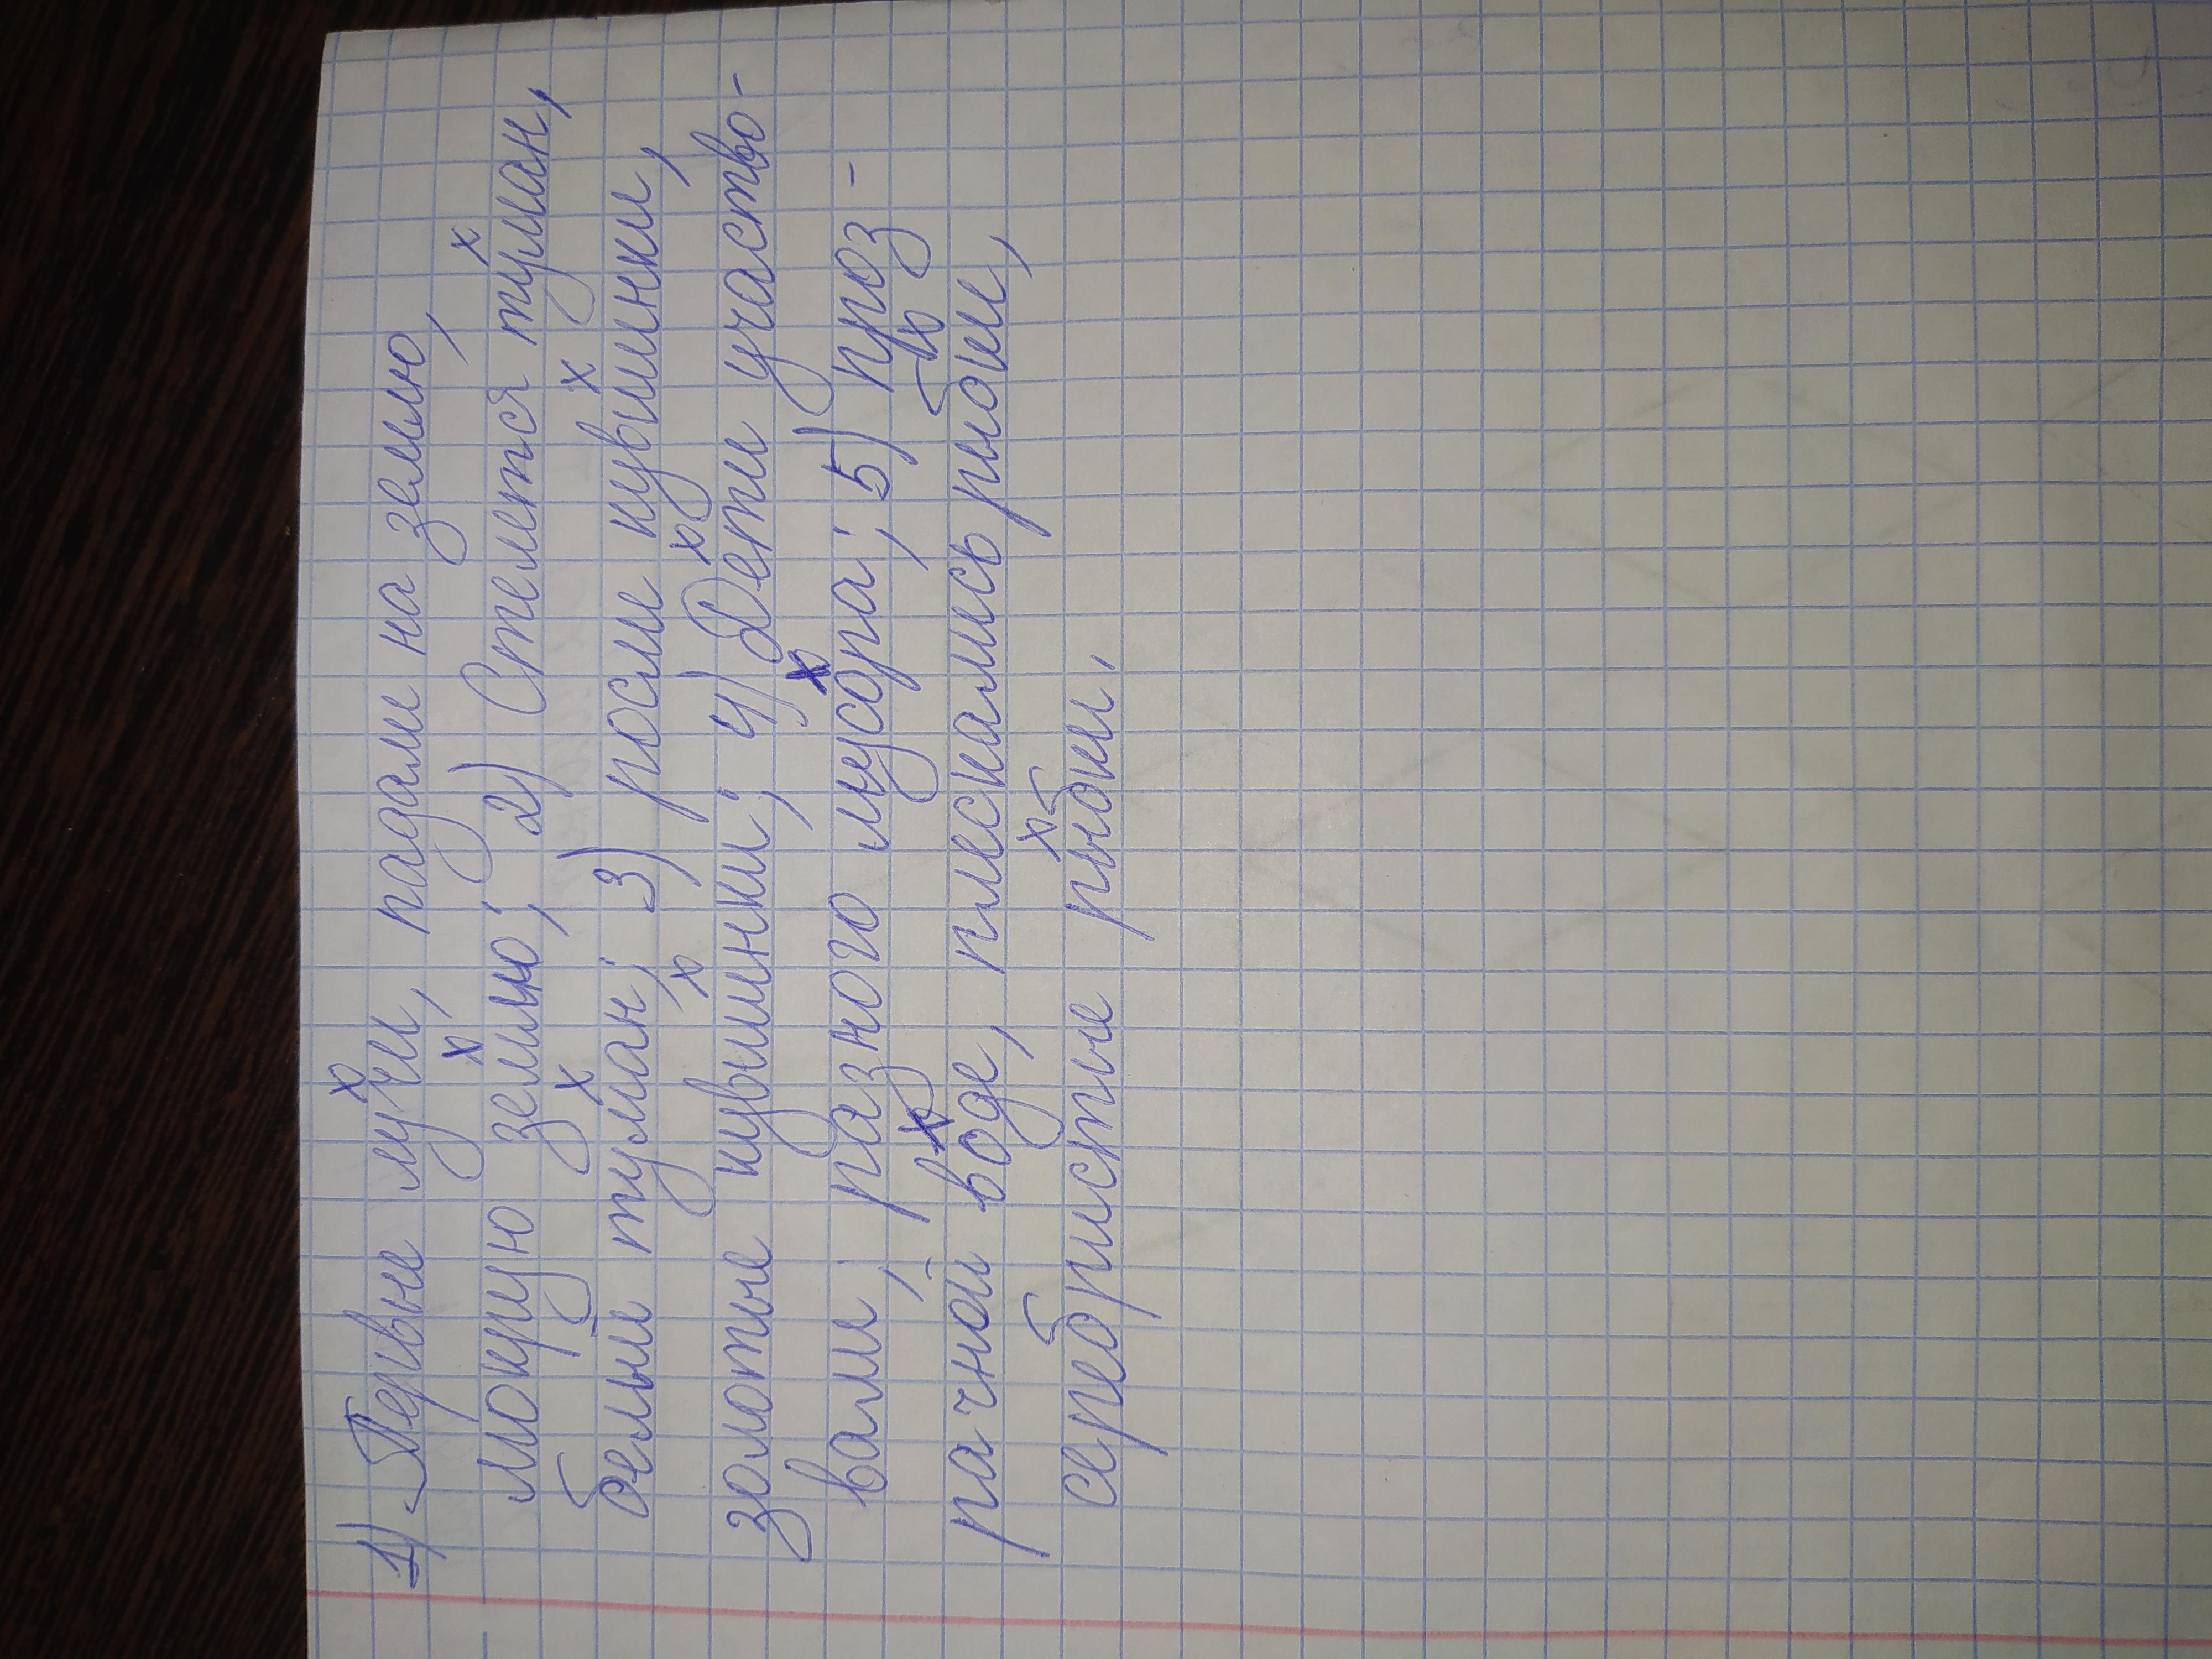 1) Первые лучи, падали на землю,
мокрую землю; 2) Стелется туман,
белые туман; 3) росли кувшинки,
золотые кувшинки; 4) Дети участво-
вали, разного мусора; 5) проз-
рачной воде, плескались рыбки,
сербристые рыбки.